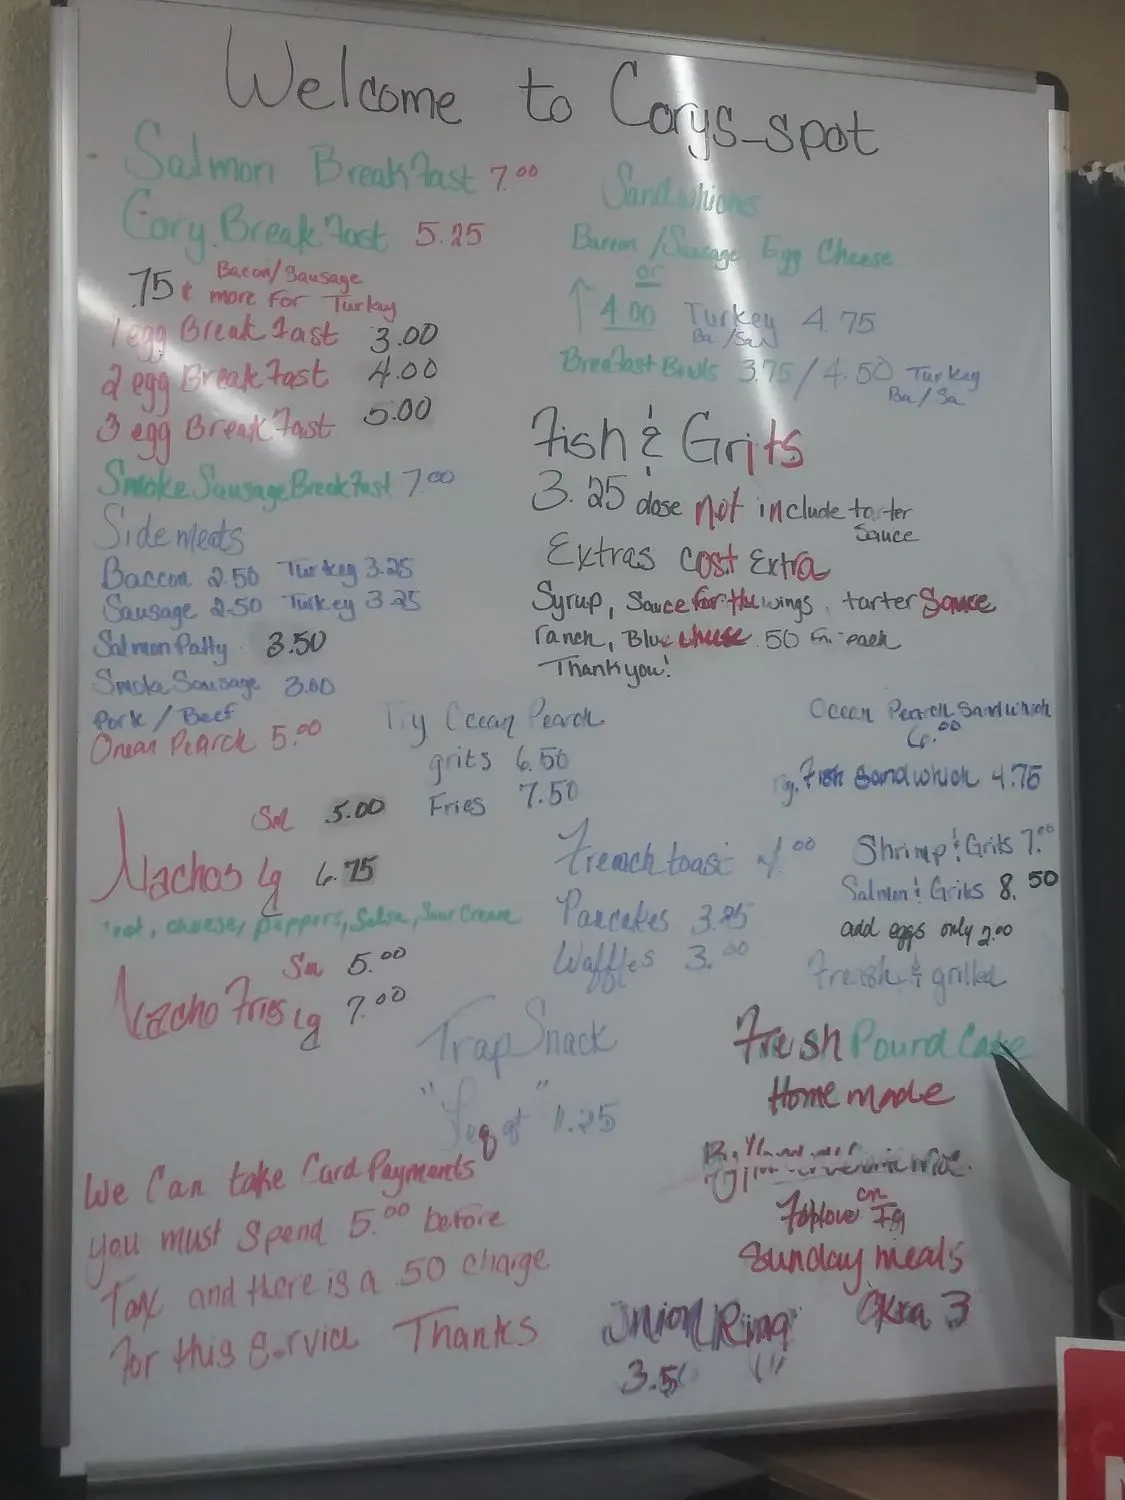 Welcome to Corys-spot
Salmon Breakfast 7.00
Cory Breakfast 5.25
.75¢ more for Turkey
Bacon/Sausage
1 egg Breakfast 3.00
2 egg Breakfast 4.00
3 egg Breakfast 5.00
Smoke Sausage Breakfast 7.00
Side meats
Baccon 2.50 Turkey 3.25
Sausage 2.50 Turkey 3.25
Salmon Patty 3.50
Smoke Sausage 3.00
Pork / Beef
Ocean Pearch 5.00
Sandwhiches
Bacon /Sausage Egg Cheese
or
↑ 4.00 Turkey 4.75
Ba /Sa
Breafast Bowls 3.75 / 4.50 Turkey
Ba / Sa
Fish & Grits
3.25 dose not include tarter
Sauce
Extras cost Extra
Syrup, Sauce for the wings, tarter Sauce
ranch, Blue cheese .50 each
Thank you!
Try Ocean Pearch
grits 6.50
Fries 7.50
Ocean Pearch Sandwhich
6.00
Fish Sandwhich 4.75
Sm 5.00
Nachos Lg 6.75
cheese, peppers, Salsa, Sour Cream
Sm 5.00
Nacho Fries Lg 7.00
French toast 4.00
Pancakes 3.25
Waffles 3.00
Shrimp & Grits 7.00
Salmon & Grits 8.50
add eggs only 2.00
Fresh & grilled
Trap Snack
1.25
Fresh Pound Cake
Home made
We Can take Card Payments
you must Spend 5.00 before
Tax and there is a .50 charge
For this Service Thanks
on
Sunday meals
Okra 3
Onion Ring
3.50